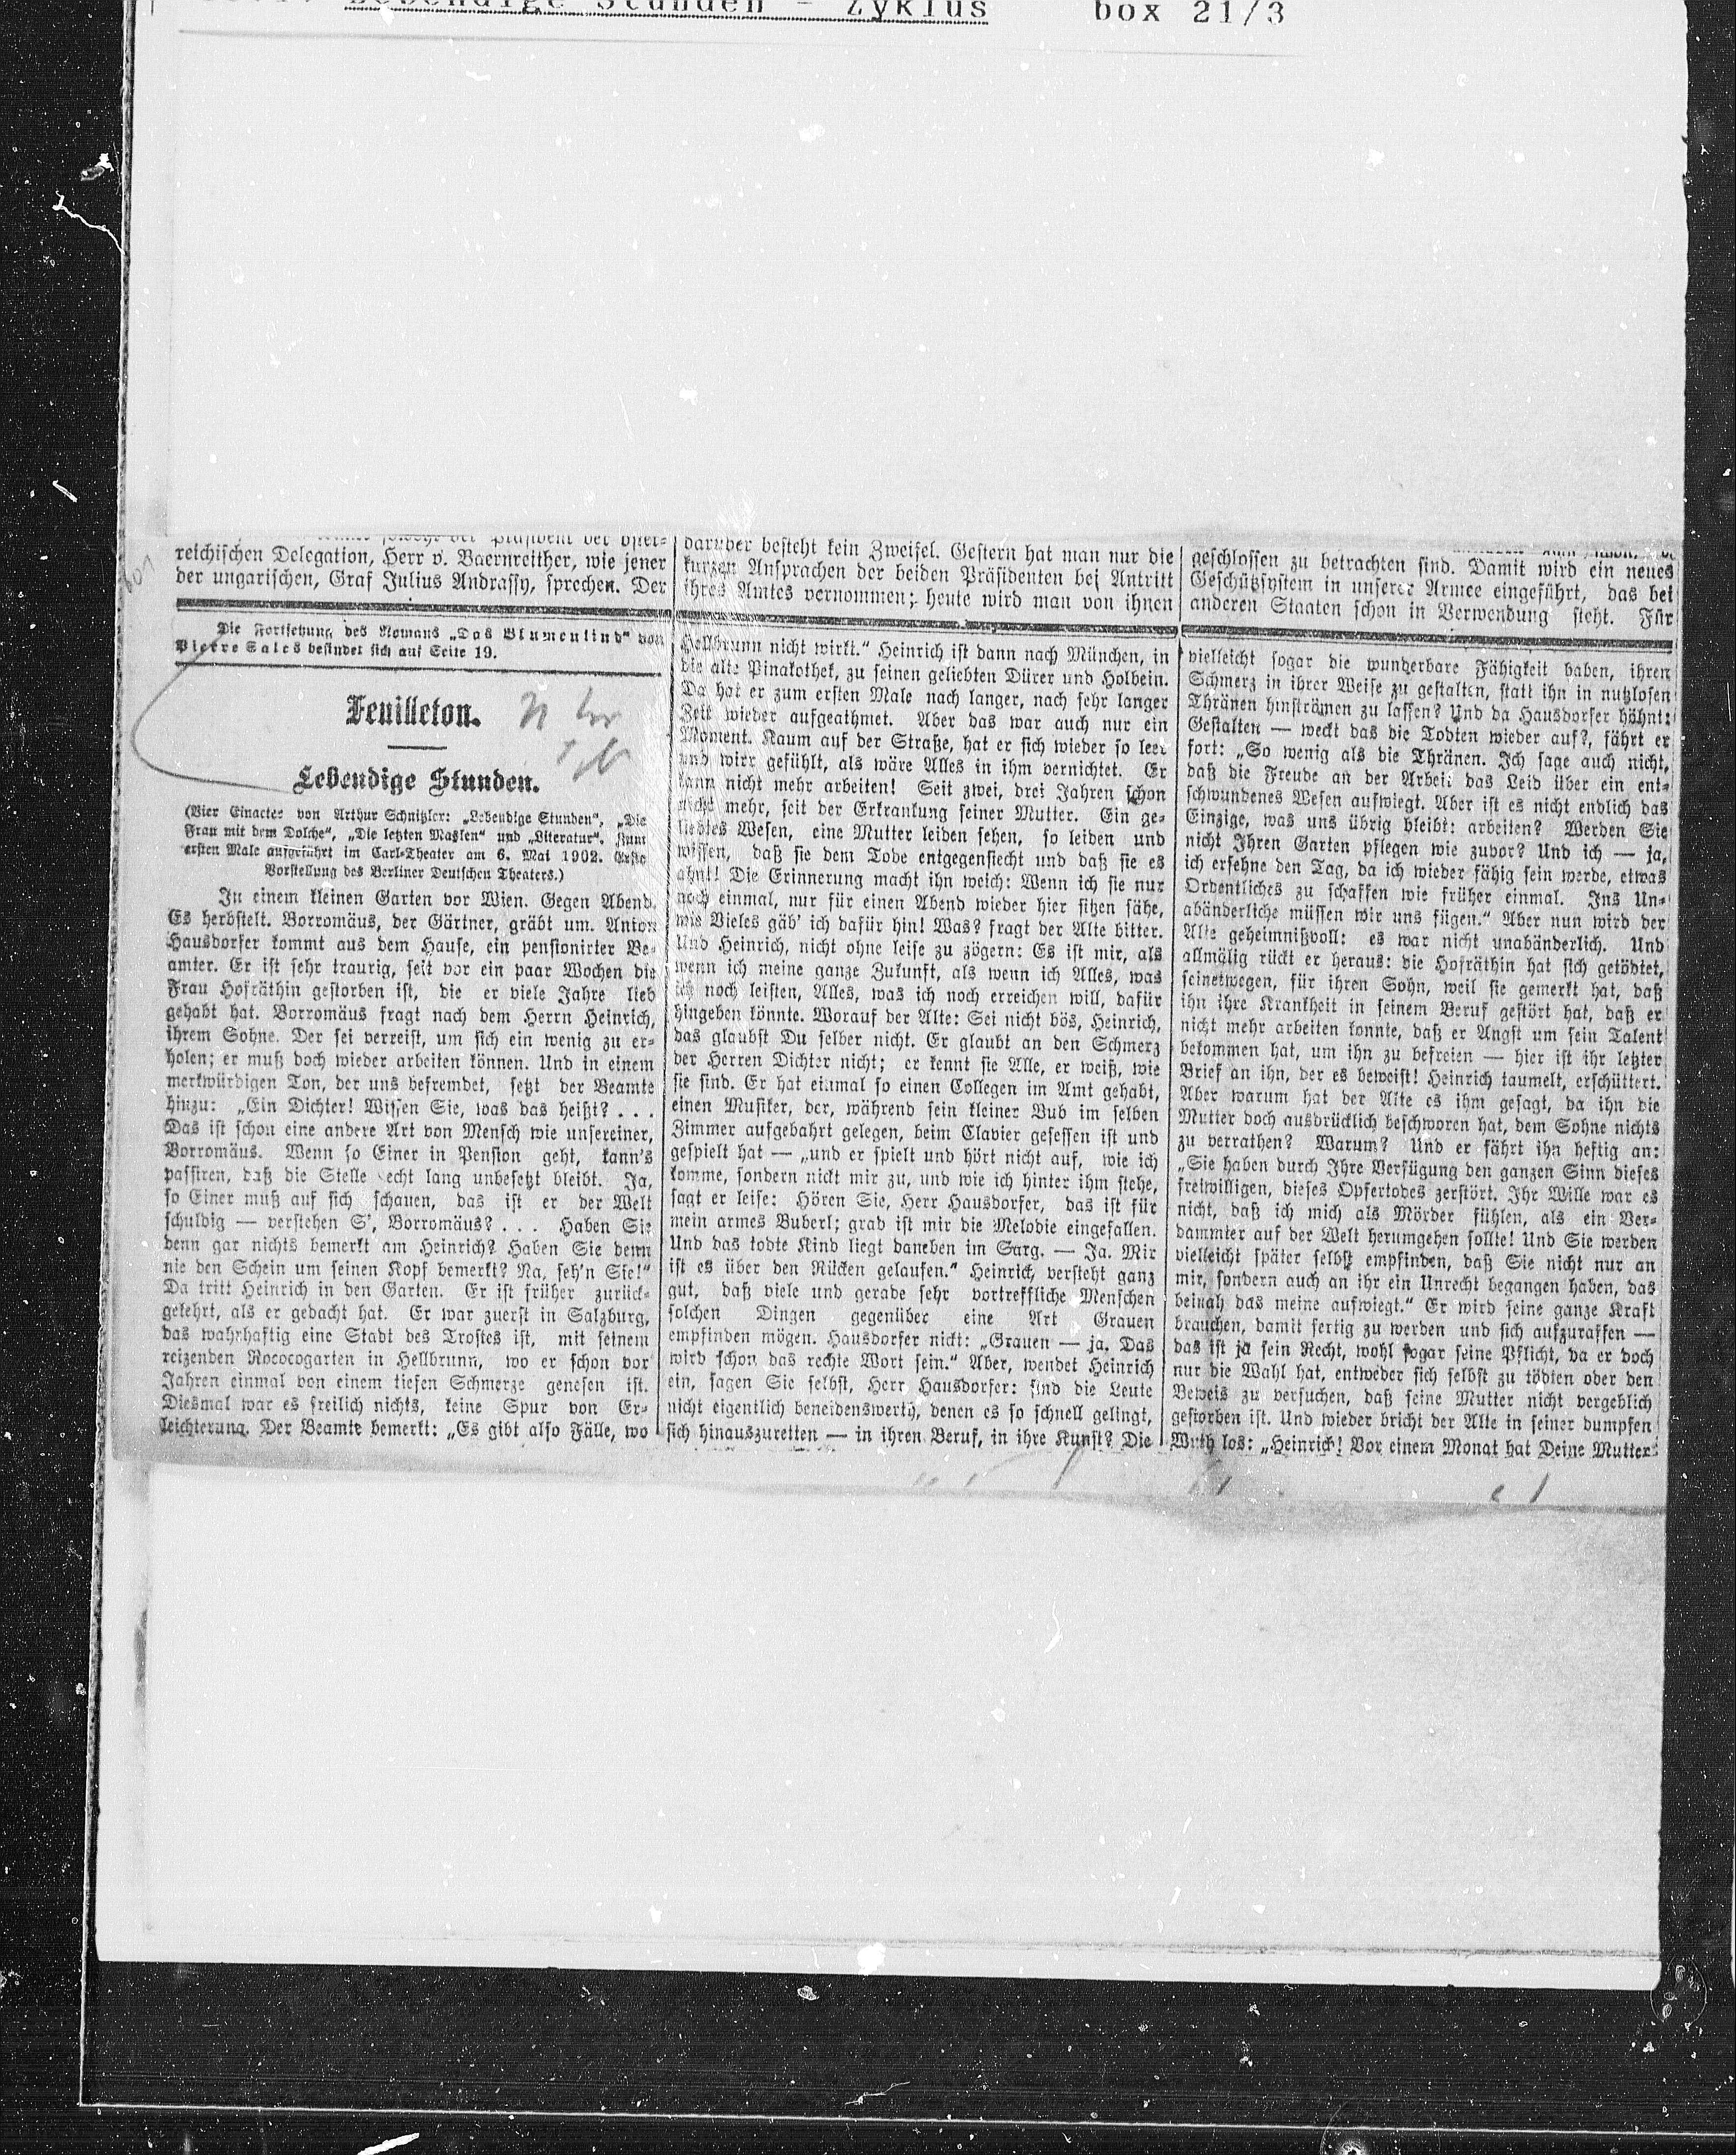 Lebendige Stunden - Zyklus box 21/3
reichischen Delegation, Herr v. Baernreither, wie jener
der ungarischen, Graf Julius Andrassy, sprechen. Der
darüber besteht kein Zweifel. Gestern hat man nur die
kurzen Ansprachen der beiden Präsidenten bei Antritt
ihres Amtes vernommen; heute wird man von ihnen
geschlossen zu betrachten sind. Damit wird ein neues
Geschützsystem in unserer Armee eingeführt, das bei
anderen Staaten schon in Verwendung steht. Für
Die Fortsetzung des Romans „Das Blumenkind“ von
Pierre Sales befindet sich auf Seite 19.
Feuilleton.
Lebendige Stunden.
(Vier Einacter von Arthur Schnitzler: „Lebendige Stunden“, „Die
Frau mit dem Dolche“, „Die letzten Masken“ und „Literatur“. Zum
ersten Male aufgeführt im Carl-Theater am 6. Mai 1902. Erste
Vorstellung des Berliner Deutschen Theaters.)
In einem kleinen Garten vor Wien. Gegen Abend.
Es herbstelt. Borromäus, der Gärtner, gräbt um. Anton
Hausdorfer kommt aus dem Hause, ein pensionirter Be-
amter. Er ist sehr traurig, seit vor ein paar Wochen die
Frau Hofräthin gestorben ist, die er viele Jahre lieb
gehabt hat. Borromäus fragt nach dem Herrn Heinrich,
ihrem Sohne. Der sei verreist, um sich ein wenig zu er-
holen; er muß doch wieder arbeiten können. Und in einem
merkwürdigen Ton, der uns befremdet, setzt der Beamte
hinzu: „Ein Dichter! Wissen Sie, was das heißt? . . .
Das ist schon eine andere Art von Mensch wie unsereiner,
Borromäus. Wenn so Einer in Pension geht, kann's
passiren, daß die Stelle recht lang unbesetzt bleibt. Ja,
so Einer muß auf sich schauen, das ist er der Welt
schuldig — verstehen S', Borromäus? . . . Haben Sie
denn gar nichts bemerkt am Heinrich? Haben Sie denn
nie den Schein um seinen Kopf bemerkt? Na, seh'n Sie!“
Da tritt Heinrich in den Garten. Er ist früher zurück-
gekehrt, als er gedacht hat. Er war zuerst in Salzburg,
das wahrhaftig eine Stadt des Trostes ist, mit seinem
reizenden Rococogarten in Hellbrunn, wo er schon vor
Jahren einmal von einem tiefen Schmerze genesen ist.
Diesmal war es freilich nichts, keine Spur von Er-
leichterung. Der Beamte bemerkt: „Es gibt also Fälle, wo
Hellbrunn nicht wirkt.“ Heinrich ist dann nach München, in
die alte Pinakothek, zu seinen geliebten Dürer und Holbein.
Da hat er zum ersten Male nach langer, nach sehr langer
Zeit wieder aufgeathmet. Aber das war auch nur ein
Moment. Kaum auf der Straße, hat er sich wieder so leer
und wirr gefühlt, als wäre Alles in ihm vernichtet. Er
kann nicht mehr arbeiten! Seit zwei, drei Jahren schon
nicht mehr, seit der Erkrankung seiner Mutter. Ein ge-
liebtes Wesen, eine Mutter leiden sehen, so leiden und
wissen, daß sie dem Tode entgegensiecht und daß sie es
ahnt! Die Erinnerung macht ihn weich: Wenn ich sie nur
noch einmal, nur für einen Abend wieder hier sitzen sähe,
wie Vieles gäb' ich dafür hin! Was? fragt der Alte bitter.
Und Heinrich, nicht ohne leise zu zögern: Es ist mir, als
wenn ich meine ganze Zukunft, als wenn ich Alles, was
ich noch leisten, Alles, was ich noch erreichen will, dafür
hingeben könnte. Worauf der Alte: Sei nicht bös, Heinrich,
das glaubst Du selber nicht. Er glaubt an den Schmerz
der Herren Dichter nicht; er kennt sie Alle, er weiß, wie
sie sind. Er hat einmal so einen Collegen im Amt gehabt,
einen Musiker, der, während sein kleiner Bub im selben
Zimmer aufgebahrt gelegen, beim Clavier gesessen ist und
gespielt hat — „und er spielt und hört nicht auf, wie ich
komme, sondern nickt mir zu, und wie ich hinter ihm stehe,
sagt er leise: Hören Sie, Herr Hausdorfer, das ist für
mein armes Buberl; grad ist mir die Melodie eingefallen.
Und das todte Kind liegt daneben im Sarg. — Ja. Mir
ist es über den Rücken gelaufen.“ Heinrich versteht ganz
gut, daß viele und gerade sehr vortreffliche Menschen
solchen Dingen gegenüber eine Art Grauen
empfinden mögen. Hausdorfer nickt: „Grauen — ja. Das
wird schon das rechte Wort sein.“ Aber, wendet Heinrich
ein, sagen Sie selbst, Herr Hausdorfer: sind die Leute
nicht eigentlich beneidenswerth, denen es so schnell gelingt,
sich hinauszuretten — in ihren Beruf, in ihre Kunst? Die
vielleicht sogar die wunderbare Fähigkeit haben, ihren
Schmerz in ihrer Weise zu gestalten, statt ihn in nutzlosen
Thränen hinströmen zu lassen? Und da Hausdorfer höhnt:
Gestalten — weckt das die Todten wieder auf?, fährt er
fort: „So wenig als die Thränen. Ich sage auch nicht,
daß die Freude an der Arbeit das Leid über ein ent-
schwundenes Wesen aufwiegt. Aber ist es nicht endlich das
Einzige, was uns übrig bleibt: arbeiten? Werden Sie
nicht Ihren Garten pflegen wie zuvor? Und ich — ja,
ich ersehne den Tag, da ich wieder fähig sein werde, etwas
Ordentliches zu schaffen wie früher einmal. Ins Un-
abänderliche müssen wir uns fügen.“ Aber nun wird der
Alte geheimnißvoll: es war nicht unabänderlich. Und
allmälig rückt er heraus: die Hofräthin hat sich getödtet,
seinetwegen, für ihren Sohn, weil sie gemerkt hat, daß
ihn ihre Krankheit in seinem Beruf gestört hat, daß er
nicht mehr arbeiten konnte, daß er Angst um sein Talent
bekommen hat, um ihn zu befreien — hier ist ihr letzter
Brief an ihn, der es beweist! Heinrich taumelt, erschüttert.
Aber warum hat der Alte es ihm gesagt, da ihn die
Mutter doch ausdrücklich beschworen hat, dem Sohne nichts
zu verrathen? Warum? Und er fährt ihn heftig an:
„Sie haben durch Ihre Verfügung den ganzen Sinn dieses
freiwilligen, dieses Opfertodes zerstört. Ihr Wille war es
nicht, daß ich mich als Mörder fühlen, als ein Ver-
dammter auf der Welt herumgehen sollte! Und Sie werden
vielleicht später selbst empfinden, daß Sie nicht nur an
mir, sondern auch an ihr ein Unrecht begangen haben, das
beinah das meine aufwiegt.“ Er wird seine ganze Kraft
brauchen, damit fertig zu werden und sich aufzuraffen —
das ist ja sein Recht, wohl sogar seine Pflicht, da er doch
nur die Wahl hat, entweder sich selbst zu tödten oder den
Beweis zu versuchen, daß seine Mutter nicht vergeblich
gestorben ist. Und wieder bricht der Alte in seiner dumpfen
Wuth los: „Heinrich! Vor einem Monat hat Deine Mutter